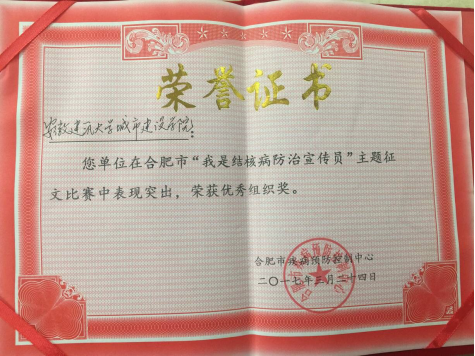 荣誉证书
安徽建筑大学城市建设学院：
您单位在合肥市“我是结核病防治宣传员”主题征
文比赛中表现突出，荣获优秀组织奖。
合肥市疾病预防控制中心
二〇一七年三月二十四日